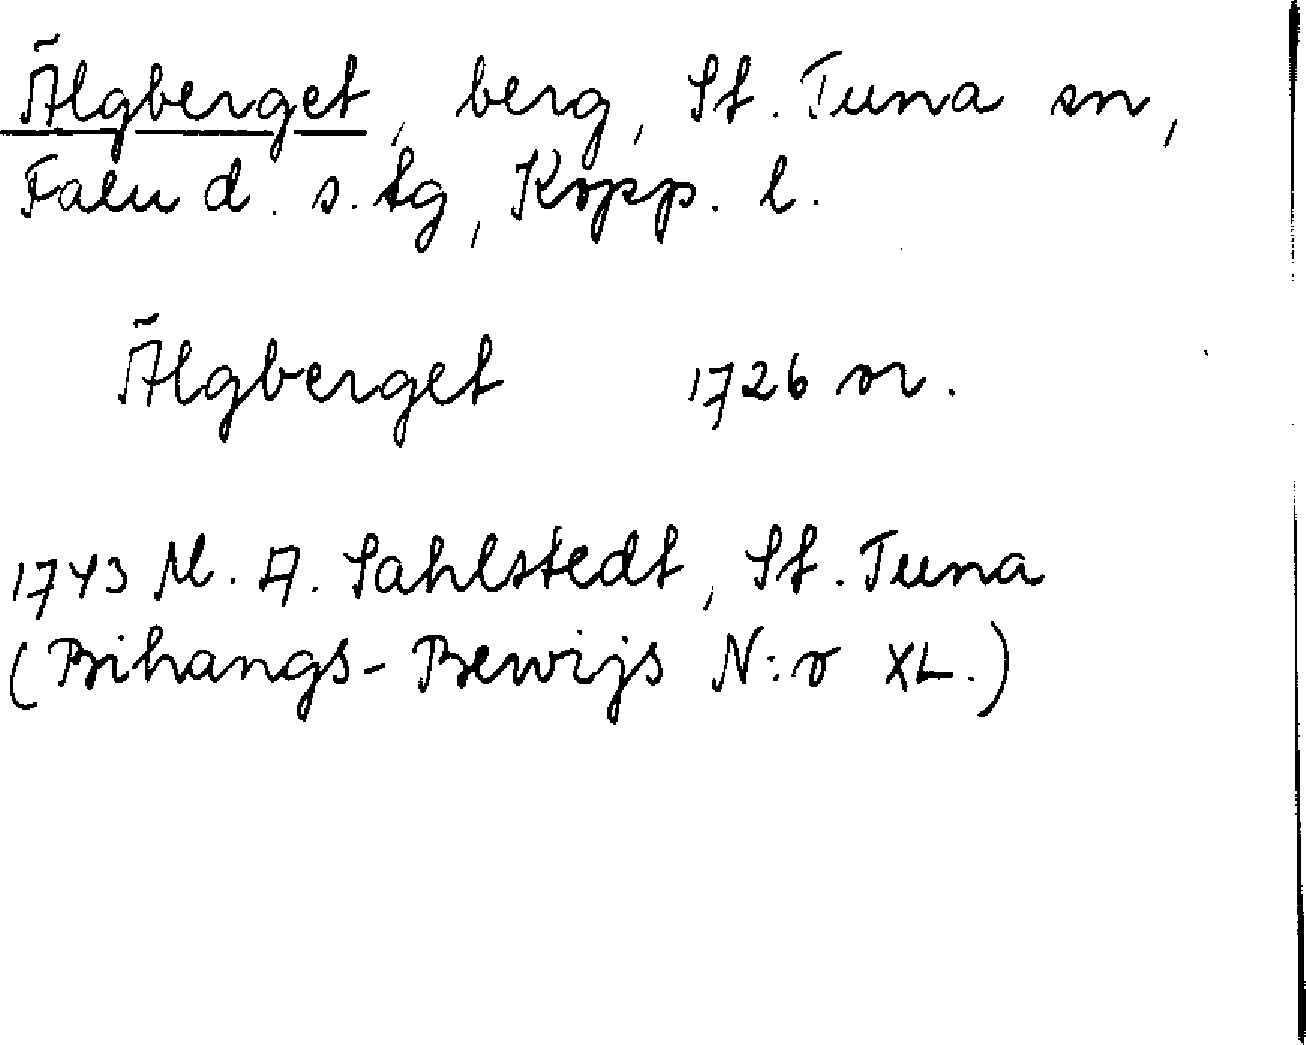 Älgberget, berg, St. Tuna sn,
Falu d. s. tg, Kopp. l.
Älgberget 1726 or.
1743 M. A. Sahlstedt, St. Tuna
(Bihangs-Bewijs N:o XL.)